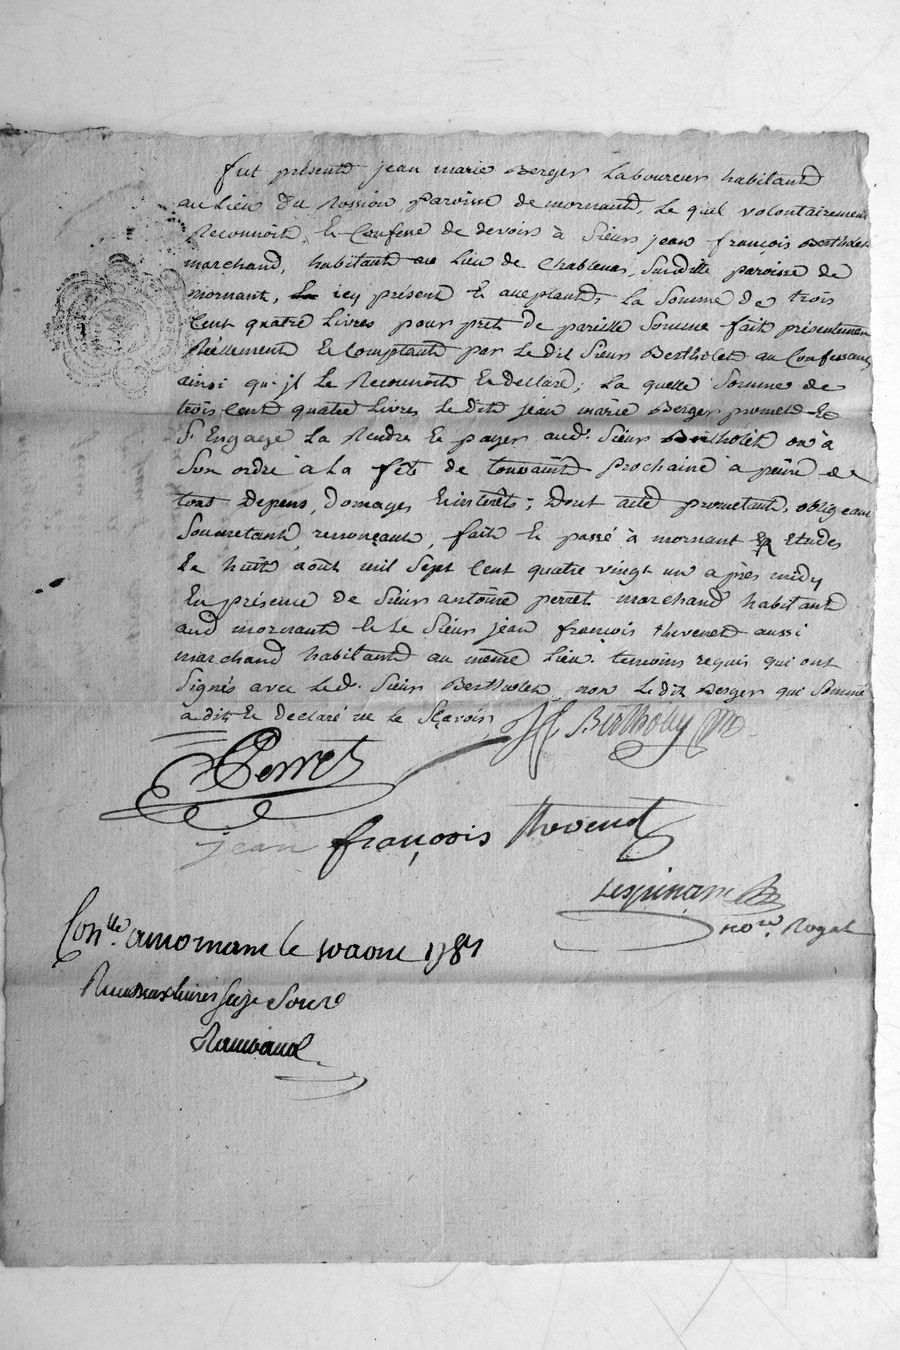 fut présentd jean marie Berger Laboureur habitantd
au Lieu du Rossion, paroisse de mornantd, Le quel volontairement
Reconnoitd, & Confesse de devoir à Sieur jean françois Bertholet
marchand, habitantd au Lieu de Chablenas, Susditte paroisse de
mornant, icy présent & acceptantd, La Somme de trois
Cent quatre Livres pour prêt de pareille Somme fait présentement
Réellement & Comptantd par Ledit Sieur Bertholet au Confessant,
ainsi qu'jl Le Reconnoitd & declare; La quelle Somme de
trois Cent quatre Livres Leditd jean marie Berger prometd &
S'Engage La Rendre & payer aud. Sieur Bertholet ou à
Son ordre à La fête de toussaintd prochaine à peine de
tout depens, Domages & interêts; Dont acte prometantd, obligeant
Soumetantd, renonçantd, fait & passé à mornant Etudes
Le huit août mil Sept Cent quatre vingt un après midy
En présence de Sieur antoine perret marchand habitant
aud mornantd & Le Sieur jean françois thevenet aussi
marchand habitantd au même Lieu. temoins requis qui ont
Signés avec Led. Sieur Bertholet, non Ledit Berger qui Sommé
a dit & declaré ne Le Sçavoir,
Bertholey
Perret
jean françois thevenet
Lespinasse
no.re Royal
Con.lle a mornant le 10 aout 1781
Sols
Raimbaud